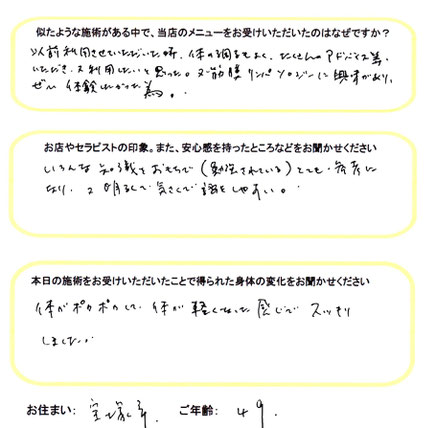 似たような施術がある中で、当店のメニューをお受けいただいたのはなぜですか？
以前利用させていただいた時、体の調子もよく、たくさんのアドバイス等、
いただき、又利用したいと思った。又、筋膜リンパソロジーに興味があり、
ぜひ体験したかった為。
お店やセラピストの印象。また、安心感を持ったところなどをお聞かせください
いろんな知識をおもちで（勉強されている）とても参考に
なり、又明るくて気さくで話しやすい。
本日の施術をお受けいただいたことで得られた身体の変化をお聞かせください
体がポカポカして、体が軽くなった感じでスッキリ
しました。
お住まい: 宝塚市 ご年齢: 49.